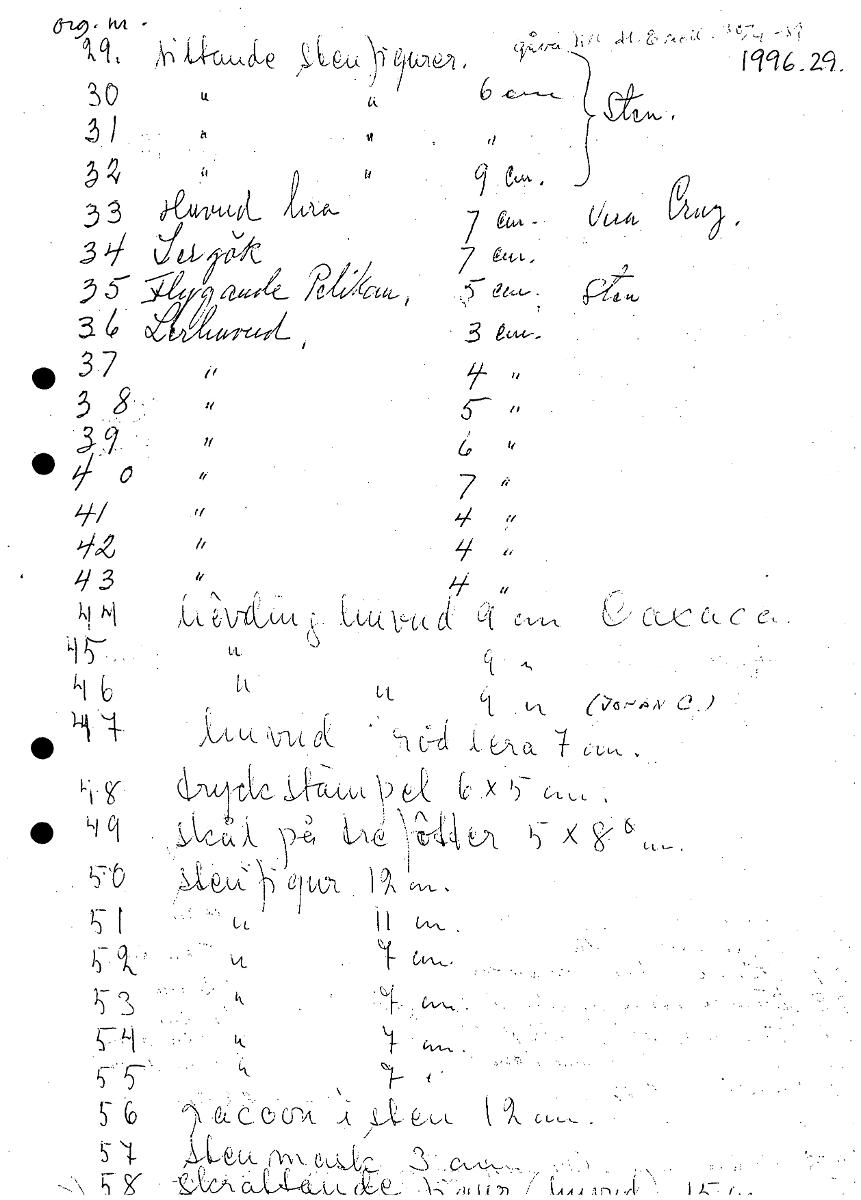 org. nr.
gåva till
1996.29.
29. sittande stenfigurer.
30 " " 6 cm
Sten.
31 " " "
32 " " 9 cm.
33 Huvud lera 7 cm. Vera Cruz.
34 Lergök 7 cm.
35 Flygande Pelikan, 5 cm. Sten
36 Lerhuvud, 3 cm.
37 " 4 "
38 " 5 "
39 " 6 "
40 " 7 "
41 " 4 "
42 " 4 "
43 " 4 "
44 hövding huvud 9 cm Oaxaca.
45 " 9 "
46 " " 9 " (JOHAN C.)
47 huvud röd lera 7 cm.
48 tryckstämpel 6 x 5 cm.
49 skål på tre fötter 5 x 8 cm.
50 stenfigur 12 cm.
51 " 11 cm.
52 " 7 cm.
53 " 7 cm.
54 " 7 cm.
55 " 7 "
56 racoon i sten 12 cm.
57 sten mask 3 cm
58 skrattande figur (huvud) 15 cm